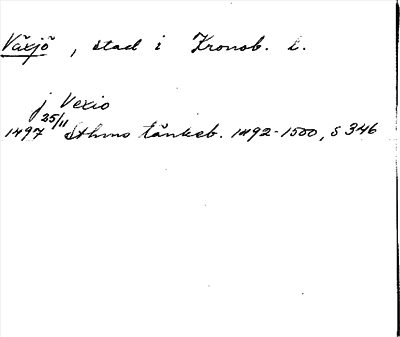 Växjö, stad i Kronob. l.
j Vexio
1497 25/11 Sthms tänkeb. 1492-1500, s 346